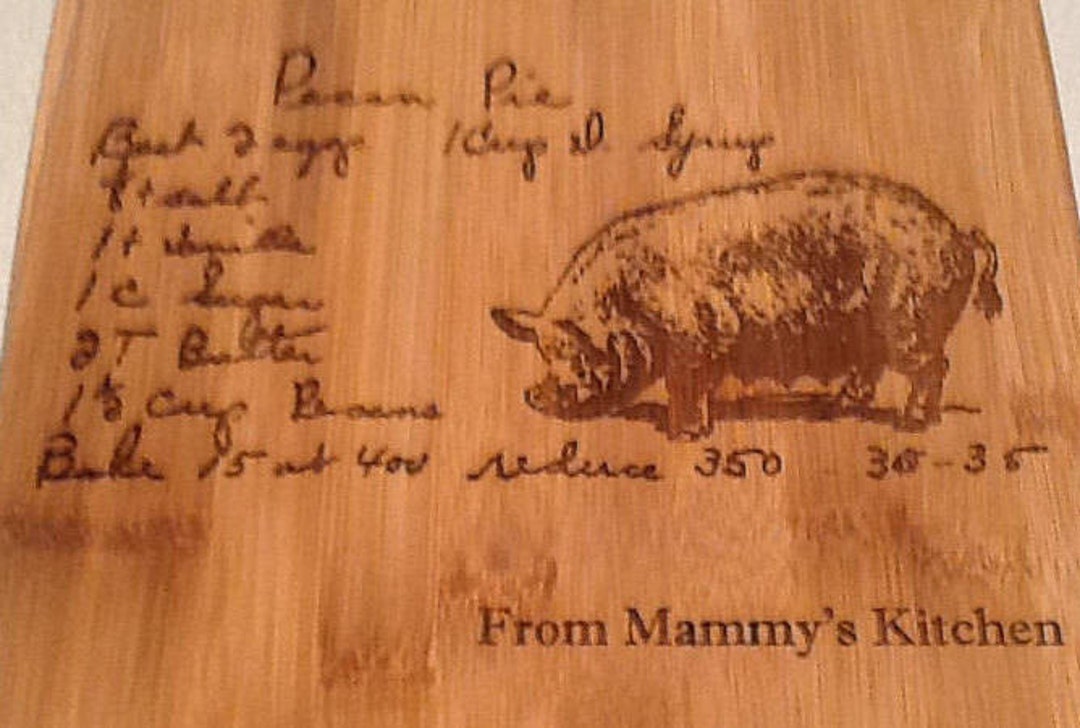 Pecan Pie
Beat 2 eggs 1 Cup D. Syrup
salt
1 t Vanilla
1 C Sugar
2 T Butter
Cup Pecans
Bake 15 at 400 reduce 350 30-35
From Mammy's Kitchen